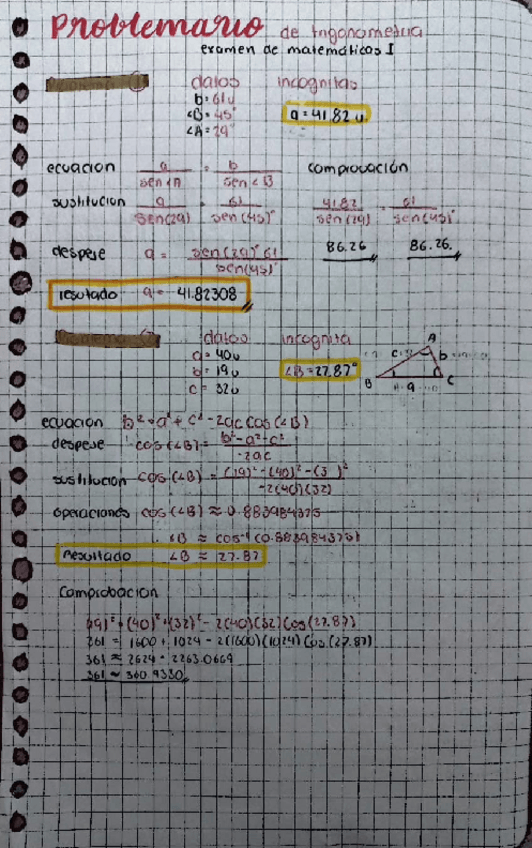 Problemario de trigonometria
examen de matemáticas I
datos incognitas
b= 61u a= 41.82 u.
∠B= 45°
∠A= 29°
ecuacion a/sen∠A = b/sen∠B comprovación
sustitucion a/sen(29) = 61/sen(45)° 41.82/sen(29) = 61/sen(45)°
despeje a = sen(29)° 61/sen(45)° 86.26 86.26.
resultado a = 41.82308
datos incognita
a= 40u ∠B=27.87°
b= 19u
c= 32u
A
c b
B a C
ecuacion b²=a²+c²-2ac cos(∠B)
despeje cos(∠B)= b²-a²-c²/-2ac
sustitucion cos(∠B)= (19)²-(40)²-(3 )²/-2(40)(32)
operaciones cos(∠B) ≈ 0.883984375
∠B ≈ cos⁻¹(0.883984375)
Resultado ∠B ≈ 27.87
Comprobacion
(19)²=(40)²+(32)²-2(40)(32)Cos(27.87)
361 = 1600 + 1024 - 2(1600)(1024) Cos(27.87)
361 ≈ 2624 - 2263.0669
361 ≈ 360.9330